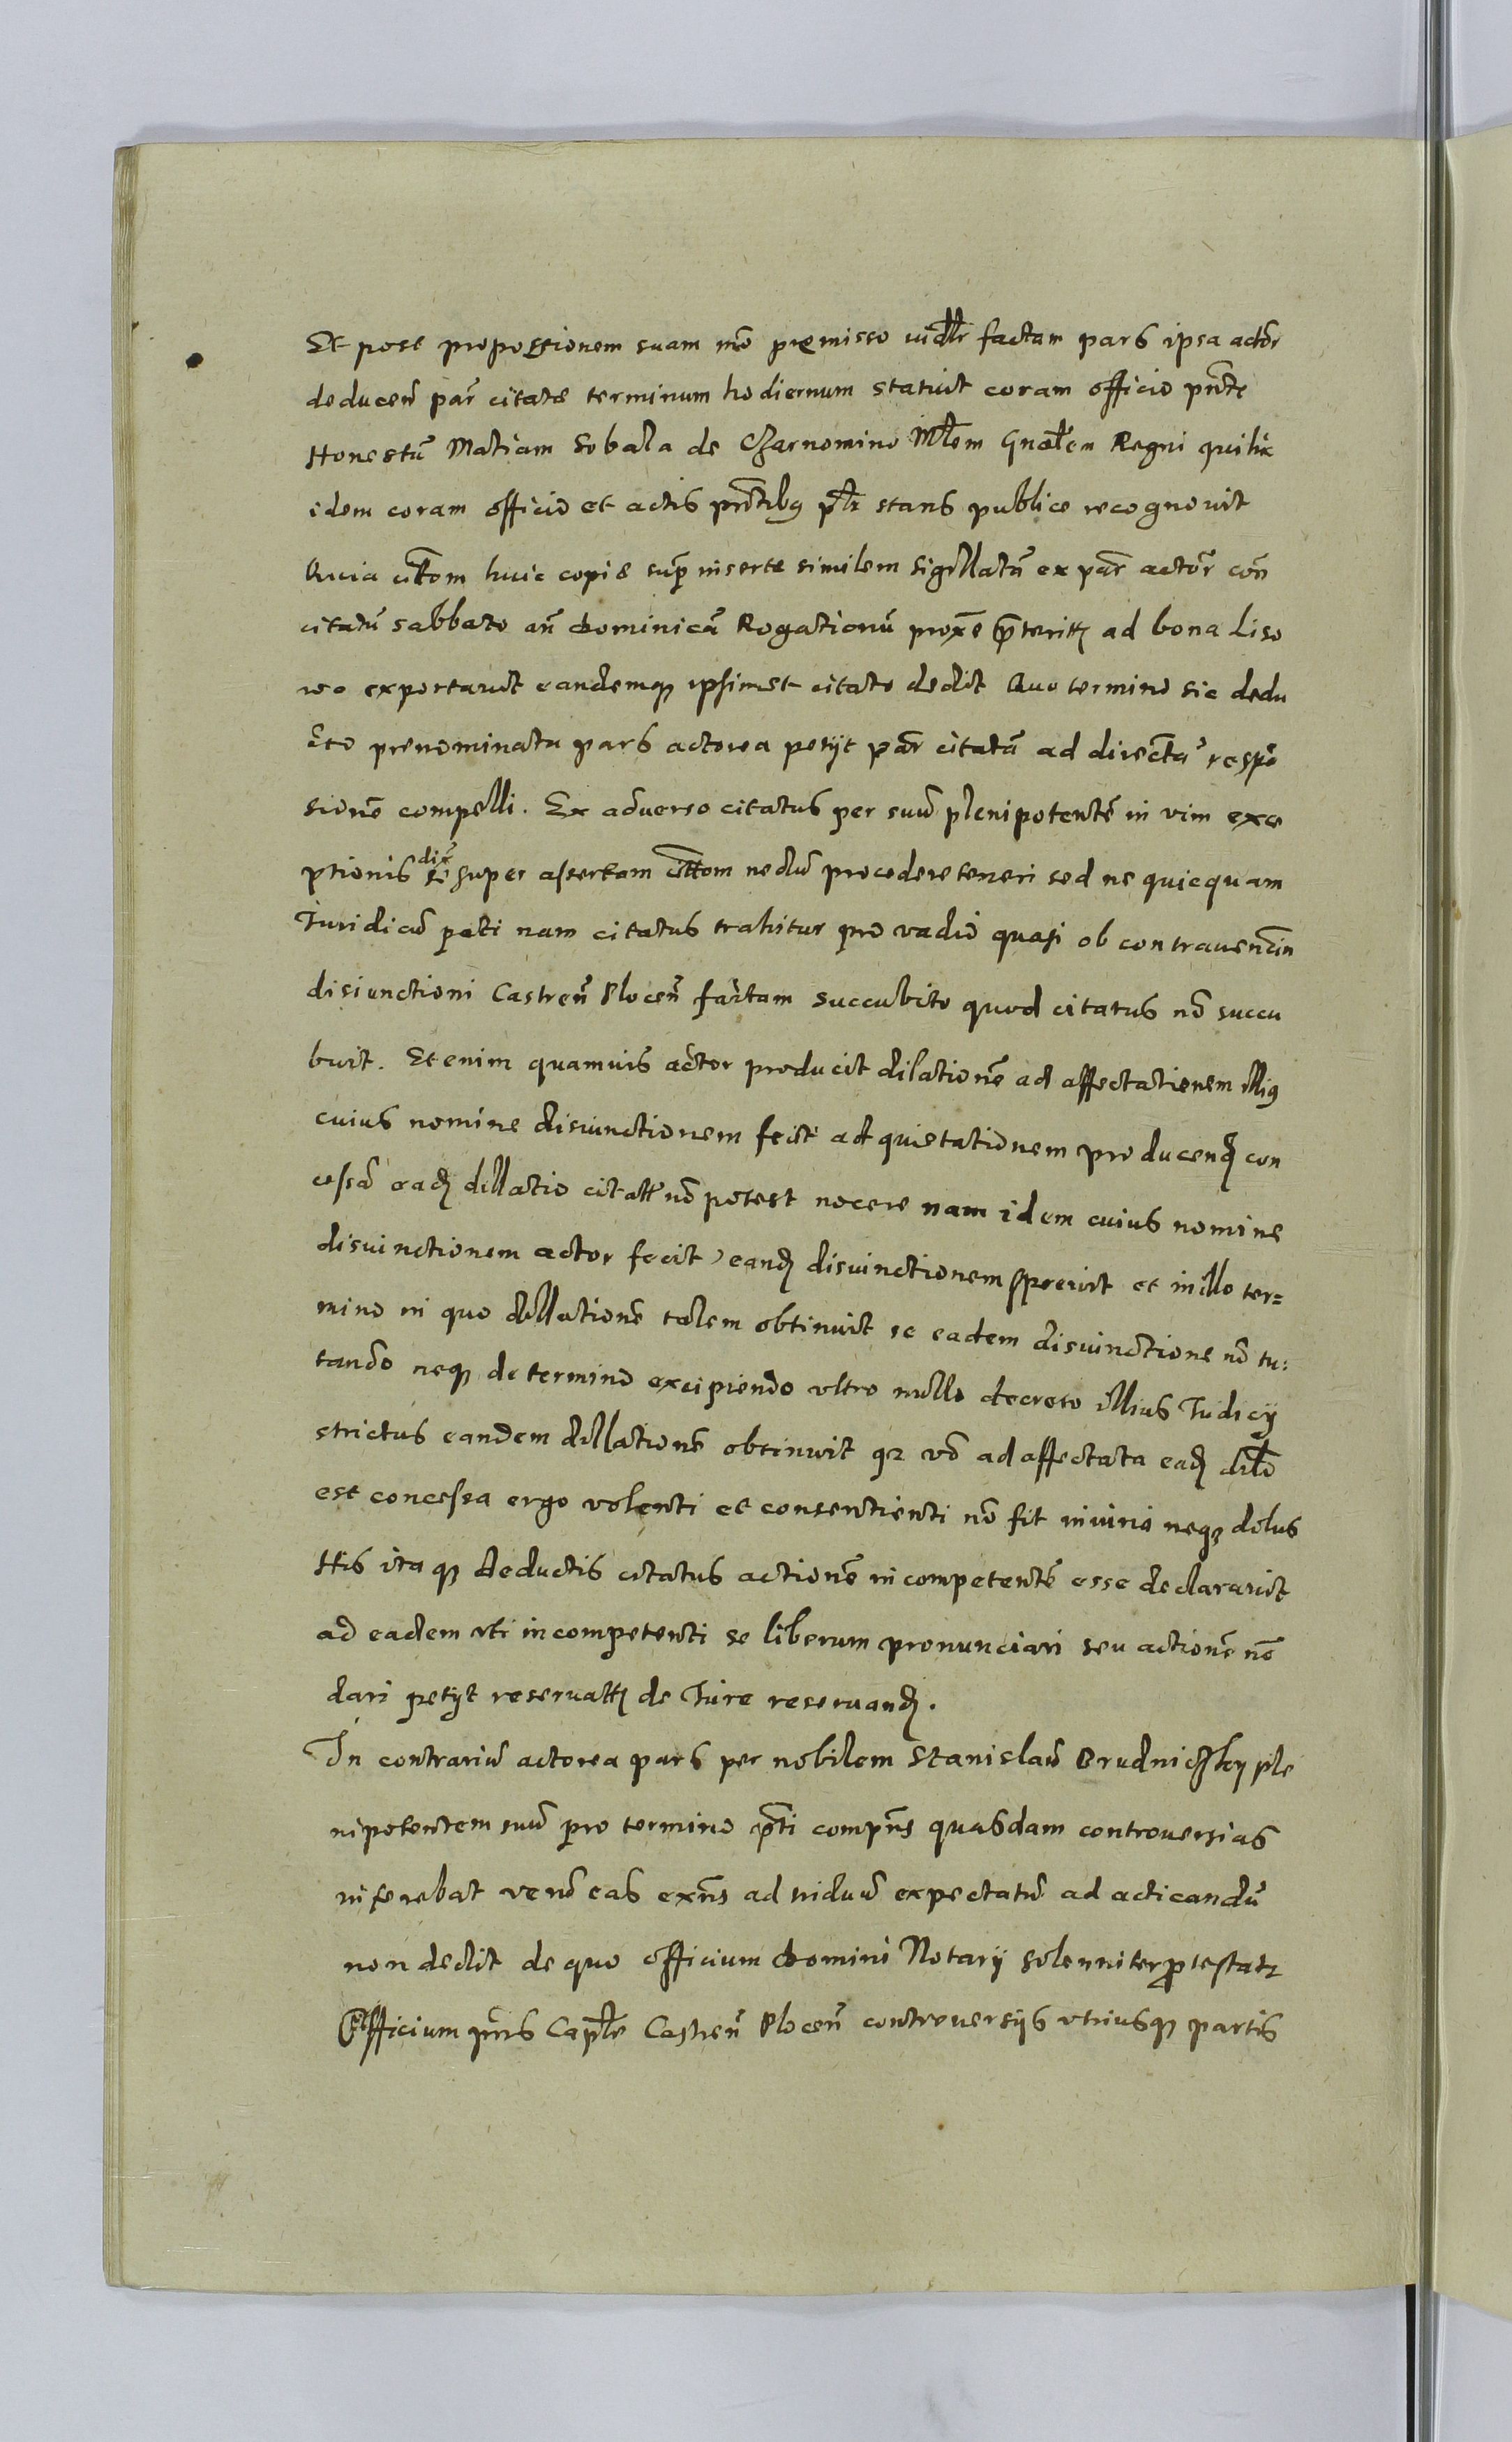 Et post propositionem suam mo premisso uidlr factam pars ipsa actor
deducen par citate terminum hodiernum statuit coram officio pnte
Honestu Matiam Sobala de Czarnomino Mlem Gnalem Regni quilr
idem coram officio et actis pntibus plr stans publice recognouit
Quia cittom huic copie supr inserte similem sigillatã ex par actor con
citatũ sabbato an dominicã Rogationũ proxe preterit ad bona Liso
wo exportauit eandemq ipsimet citato dedit Quo termino sic dedu
cto prenominata pars actorea petijt par citatã ad directã respõ
sionẽ compelli. Ex aduerso citatus per suũ plenipotentẽ in vim exce
ptionis dix super assertam cittom nedũ procedere teneri sed ne quicquam
Iuridicũ pati nam citatus trahitur pro vadio quasi ob contrauentin
disiunctioni Castren Plocen factam succubito quod citatus nõ succu
buit. Etenim quamuis actor producit dilationẽ ad affectationem illius
cuius nomine disiunctionem fecit ad quietationem producend con
cessã ead dillatio citatt nõ potest nocere nam idem cuius nomine
disiunctionem actor fecit eand disiunctionem spreuit et in illo ter=
mino in quo dillationẽ talem obtinuit se eadem disiunctione nõ tu=
tando neq de termino excipiendo vltro nullo decreto illius Iudicij
strictus eandem dillationẽ obtinuit qr vo ad affectata ead dilo
est concessa ergo volenti et consentienti nõ fit iniuria neq dolus
His itaq deductis citatus actionẽ incompetentẽ esse declarauit
ad eadem vti incompetenti se liberum pronunciari seu actionẽ nõ
dari petijt reseruatt de Iure reseruand.
In contrariũ actorea pars per nobilem Stanislaũ Brudniczky ple
nipotentem suũ pro termino pnti compns quasdam controuersias
inferebat verũ eas exns ad triduũ expectatũ ad acticandũ
non dedit de quo officium domini Notarij solenniter protestatr
Officium pns Caplr Castren Plocen controuersijs vtriusq partis